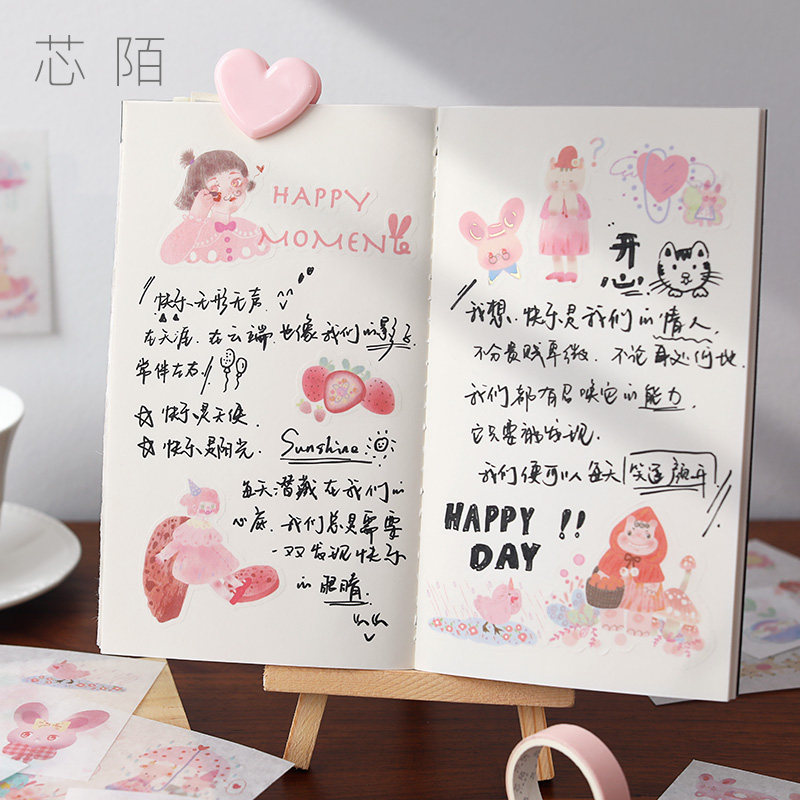 芯陌
HAPPY
MOMENT
快乐无形无声
在天涯.在云端.也像我们的影子
常伴左右
☆快乐是天使.
☆快乐是阳光.
Sunshine
每天潜藏在我们的
心底.我们总是需要
一双发现快乐
的眼睛.
?
开
心
我想.快乐是我们的情人.
不分贵贱卑微.不论身处何地.
我们都有召唤它的能力
它只要能发现.
我们便可以每天笑逐颜开
HAPPY !!
DAY